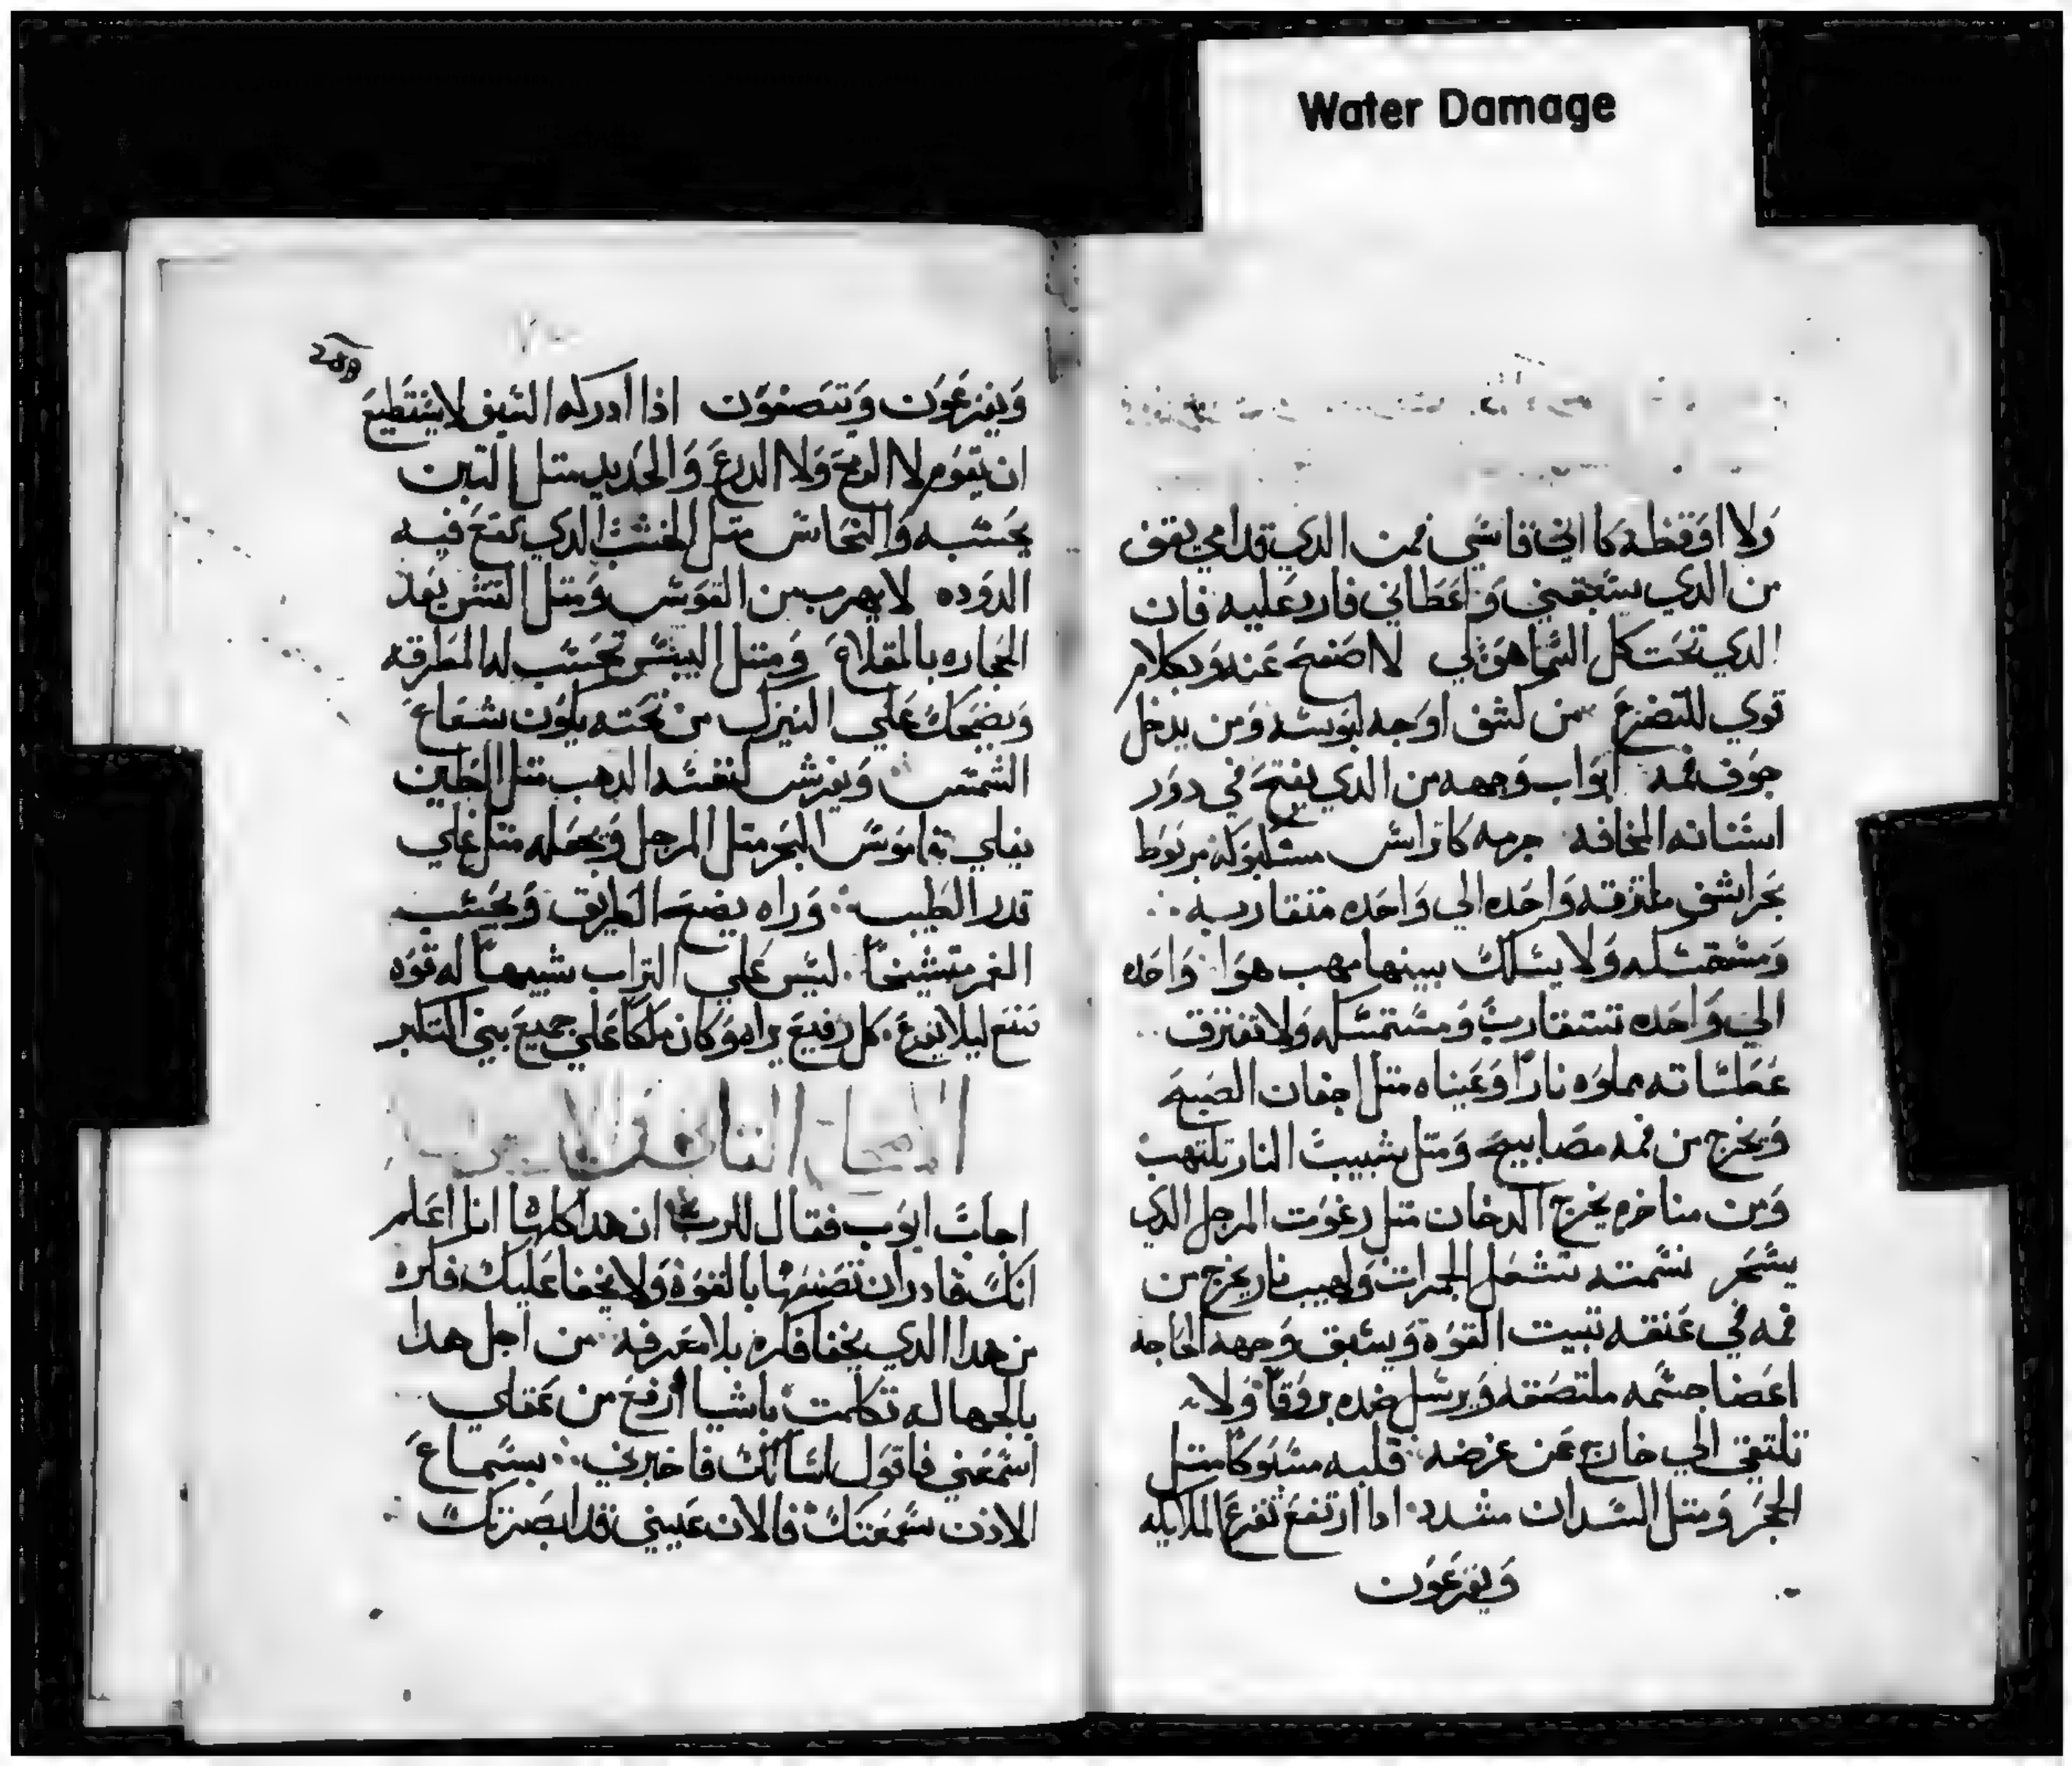 Water Damage
ولا اوقظه كا اني قاسي فمن الدي قدامي يقف
من الدي سبقني واعطاني فارد عليه فان
الدي تحت كل السما هو لي لا اصفح عنه وبكلام
قوي للتضرع من كشف اوجه لبوسه ومن يدخل
جوف فمه ابواب وجهه من الدي يفتح في دور
اسنانه المخافه جرمه كاتراس مسبوكه مربوط
بحراشف ملتزقه واحده الي واحده متقاربه
ولا يسلك بينها مهب هوا واحده
الي واحده ومستمسكه ولا تفترق
عطساته مملوه نارًا وعيناه متل اجفان الصبح
ويخرج من فمه مصابيح ومتل شبيب النار تلتهب
ومن مناخره يخرج الدخان متل رغوت المرجل الدي
يسجر نسمته تشعل الجمرات ولهيب نار يخرج من
فمه في عنقه تبيت القوه ويسبق وجهه الحاجه
اعضا جسمه ملتصقه ويرسل ضده بروقًا ولا
تلتفي الي خارج عن عرضه قلبه مسبوكًا متل
الحجر ومتل السدان مشدد ادا ارتفع تفزع الملايكه
ويفزعون
ويفزعون وتتصفون اذا ادركه السيف لا يستطيع
ان يقوم لا الرمح ولا الدرع والحديد متل التبن
يحسبه والنحاس متل الخشب الدي تقع فيه
الدوده لا يهرب من القوس ومتل القش يعد
الحجاره بالمقلاع ومتل اليبس تحسب له المطرقه
ويضحك علي النيزك من تحته يكون شعاع
الشمس ويفرش لنفسه الدهب متل الطين
يغلي قاموس البحر متل المرجل ويجعله متل غلي
قدر الطيب وراه يضيح الطريق ويحسب
الغمر متشيخًا ليس علي التراب شبيهًا له قوه
ليلا يفزع كل رفيع يراه وكان ملكًا علي جميع بني التكبر
اجاب ايوب فقال للرب ان هدا كلها انا اعلم
انك قادر ان تصنعها بالقوه ولا يخفا عليك فكره
من هدا الدي يخفا فكره بلا معرفه من اجل هدا
بالجهاله تكلمت باشيا ارفع من عقلي
اسمعني فاقول اسالك فاخبرني بسماع
الادن سمعتك فالان عيني قد ابصرتك